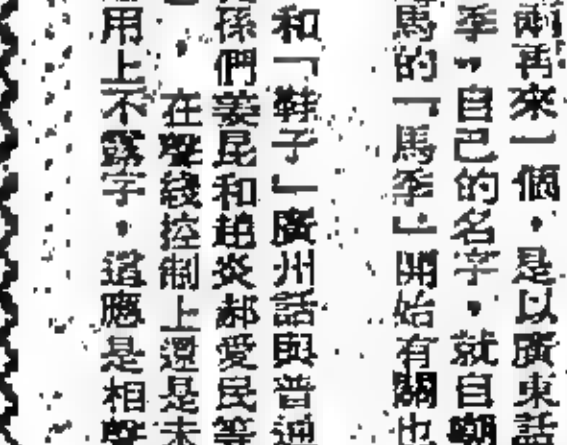 再來一個，是以廣東話
季，自己的名字，就自嘲
馬的「馬季」開始有關也
和「鞋子」廣州話與普通
係們姜昆和趙炎郝愛民等
在聲綫控制上還是未
用上不露字，這應是相聲